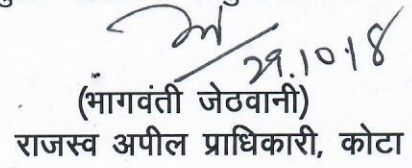 29.10.18
(भागवंती जेठवानी)
राजस्व अपील प्राधिकारी, कोटा